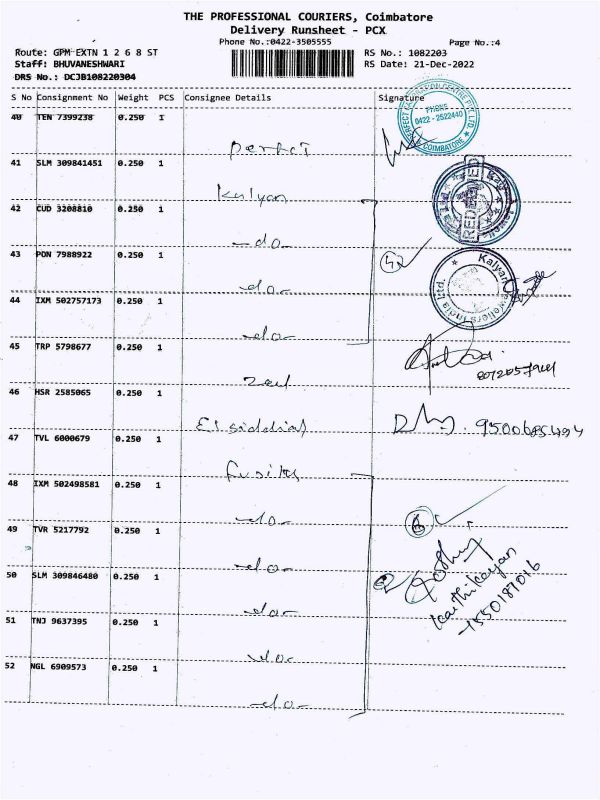 THE PROFESSIONAL COURIERS, Coimbatore
Delivery Runsheet - PCX
Phone No.:0422-3505555
Page No.:4
Route: GPM-EXTN 1 2 6 8 ST
RS No.: 1082203
Staff: BHUVANESHWARI
RS Date: 21-Dec-2022
DRS No.: DCJB108220304
S No Consignment No Weight PCS Consignee Details Signature
40 TEN 7399238 0.250 1
PERFECT CENTRE PVT. LTD. PHONE 0422 - 2522440 COIMBATORE
Perfect
41 SLM 309841451 0.250 1
Kalyan
REDEEMED
42 CUD 3208810 0.250 1
-do-
43 PDN 7988922 0.250 1
-do-
Kalyan Jewellers India Ltd.
44 IXM 502757173 0.250 1
-do-
45 TRP 5798677 0.250 1
46 HSR 2585065 0.250 1
El siddias
9500685494
47 TVL 6000679 0.250 1
48 IXM 502498581 0.250 1
-do-
49 TVR 5217792 0.250 1
-do-
50 SLM 309846480 0.250 1
-do-
Karthikeyan
51 TNJ 9637395 0.250 1
-do-
52 NGL 6909573 0.250 1
-do-